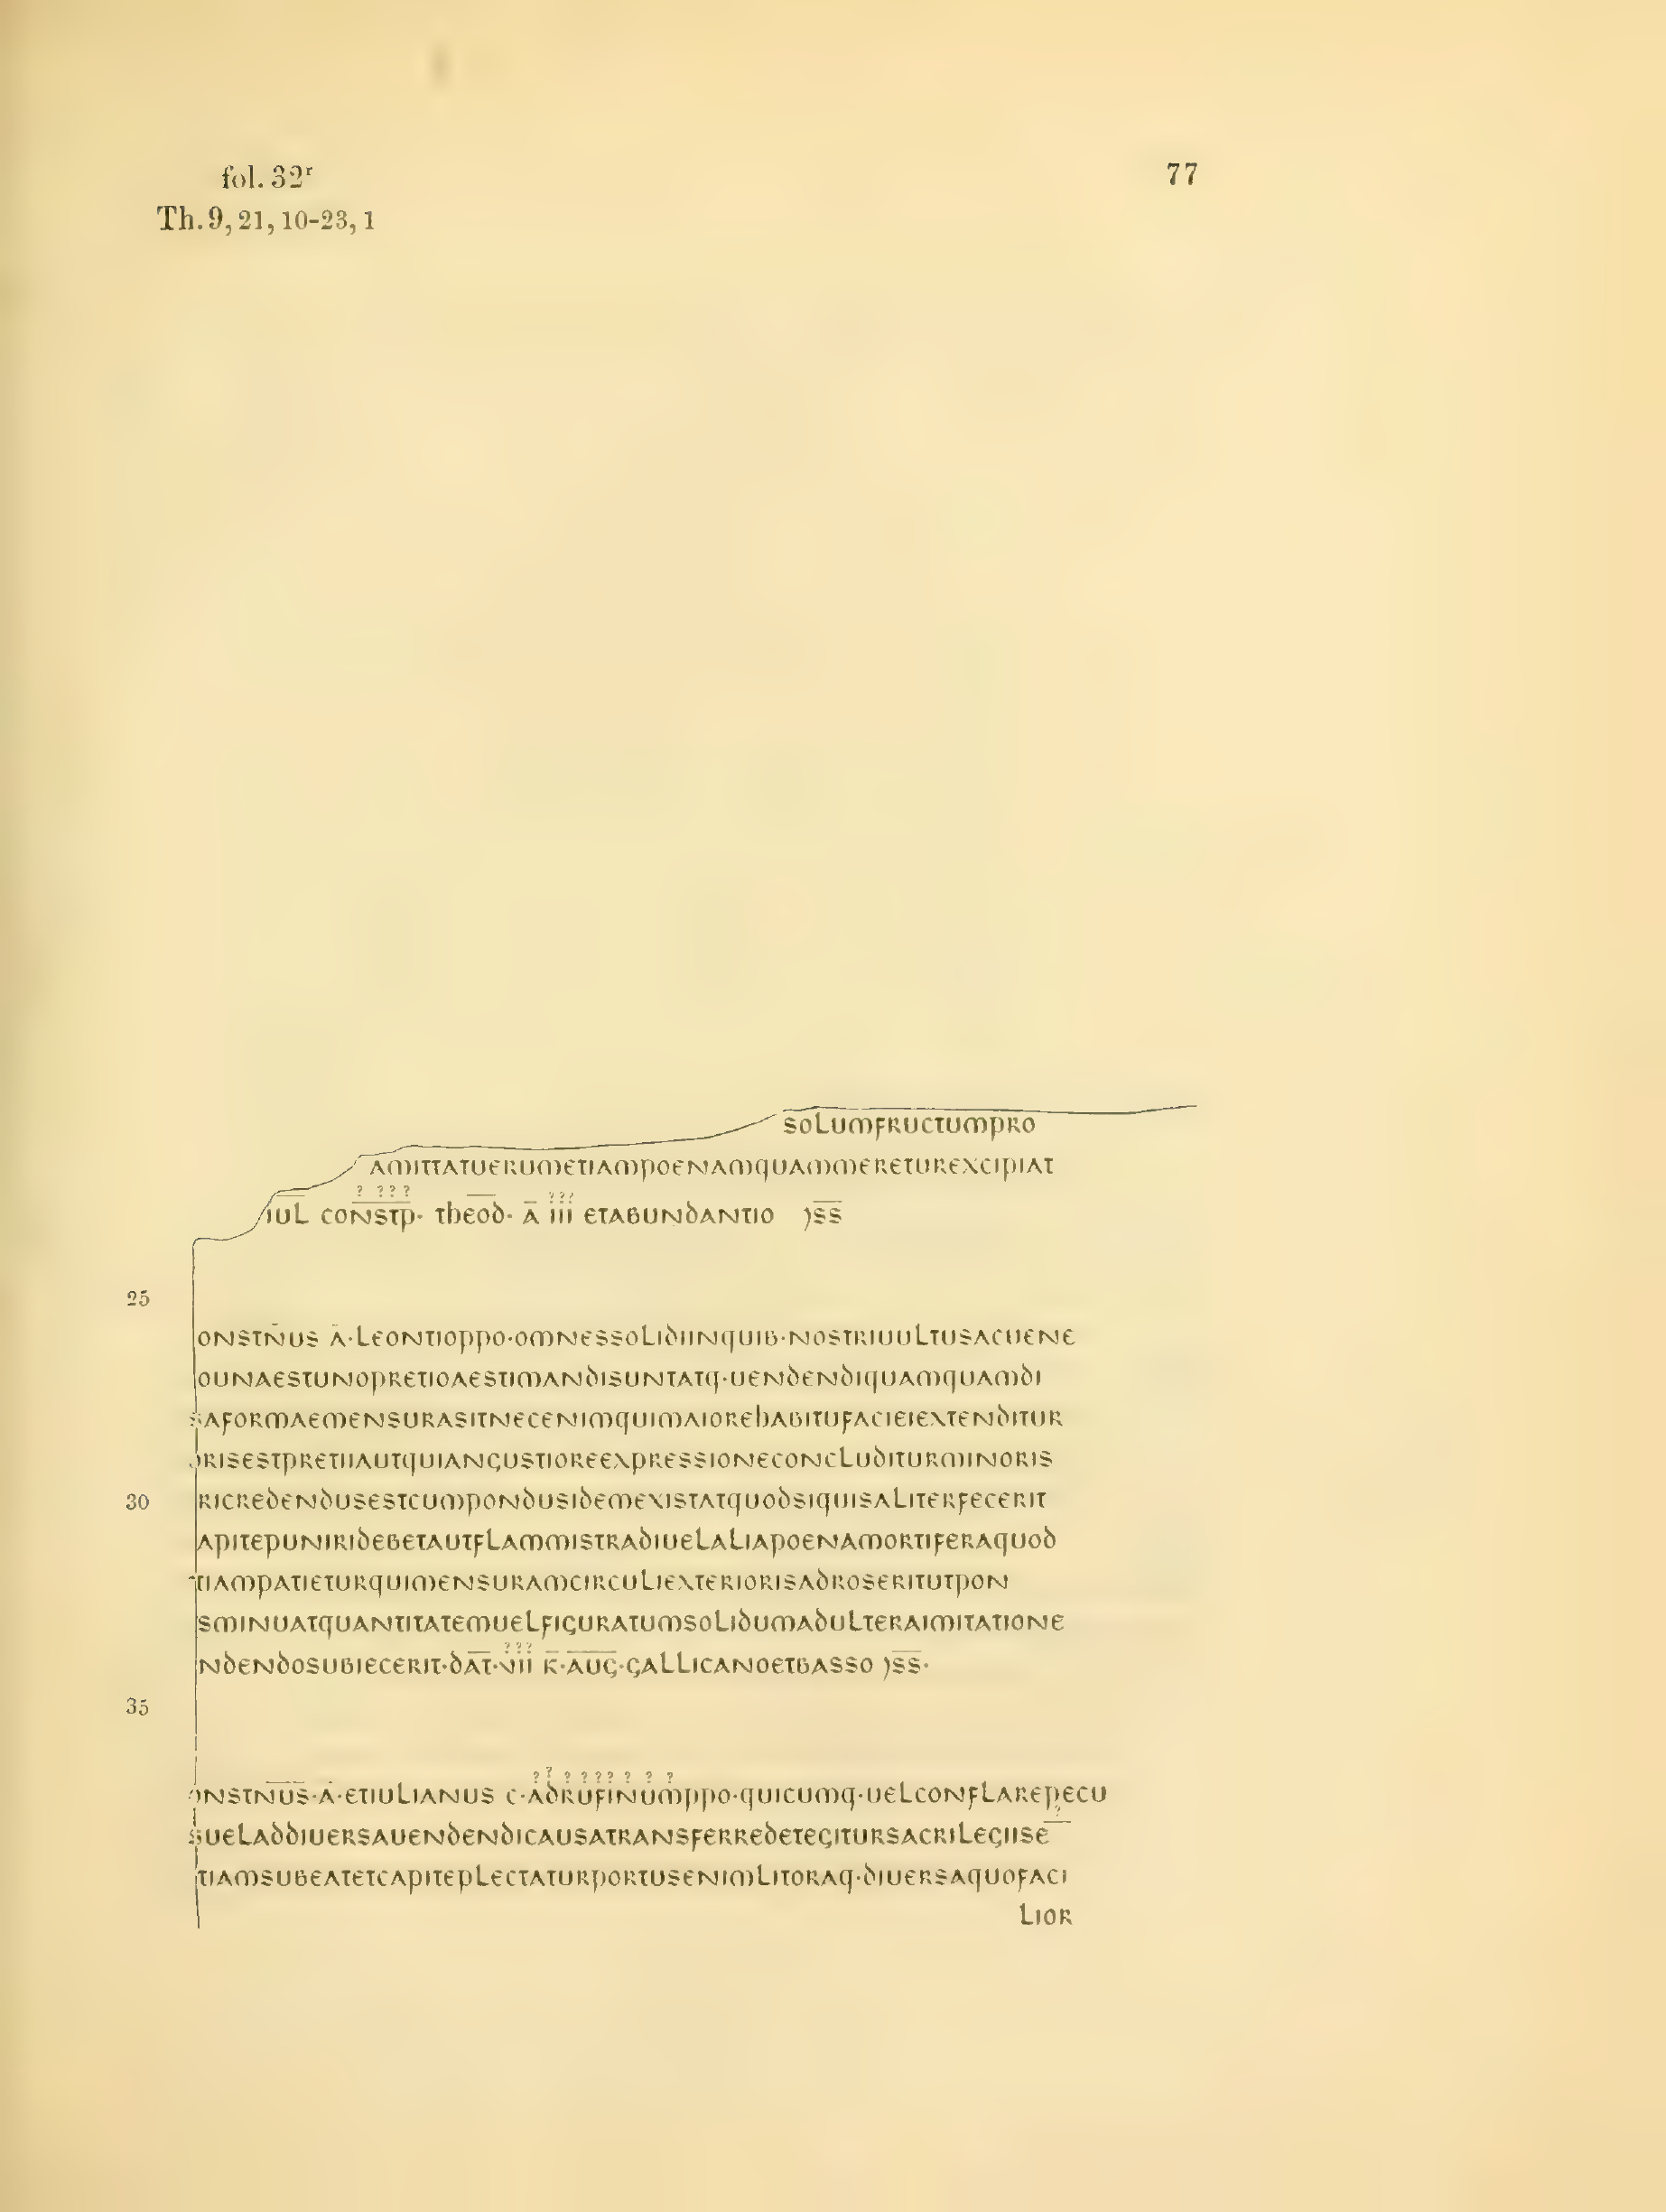 fol. 32r
77
Th. 9, 21, 10-23, 1
SOLUMFRUCTUMPRO
AMITTATUERUMETIAMPOENAMQUAMMERETUREXCIPIAT
? ???
???
IUL CONSTP· THEOD· Ā III ETABUNDANTIO )S̄S̄
25
ONSTN̄US Ā·LEONTIOPPO·OMNESSOLIDIINQUIB·NOSTRIUULTUSACUENE
OUNAESTUNOPRETIOAESTIMANDISUNTATQ·UENDENDIQUAMQUAMDI
SAFORMAEMENSURASITNECENIMQUIMAIOREHABITUFACIEIEXTENDITUR
ORISESTPRETIIAUTQUIANGUSTIOREEXPRESSIONECONCLUDITURMINORIS
30 RICREDENDUSESTCUMPONDUSIDEMEXISTATQUODSIQUISALITERFECERIT
APITEPUNIRIDEBETAUTFLAMMISTRADIUELALIAPOENAMORTIFERAQUOD
TIAMPATIETURQUIMENSURAMCIRCULIEXTERIORISADROSERITUTPON
SMINUATQUANTITATEMUELFIGURATUMSOLIDUMADULTERAIMITATIONE
???
NDENDOSUBIECERIT·DĀT̄·VII K̄·ĀŪḠ·GALLICANOETBASSO )S̄S̄·
35
? ? ? ???? ? ? ?
ONSTN̄ŪS̄·Ā·ETIULIANUS C·ADRUFINUMPPO·QUICUMQ·UELCONFLAREPECU
?
SUELADDIUERSAUENDENDICAUSATRANSFERREDETEGITURSACRILEGIISE
TIAMSUBEATETCAPITEPLECTATURPORTUSENIMLITORAQ·DIUERSAQUOFACI
LIOR